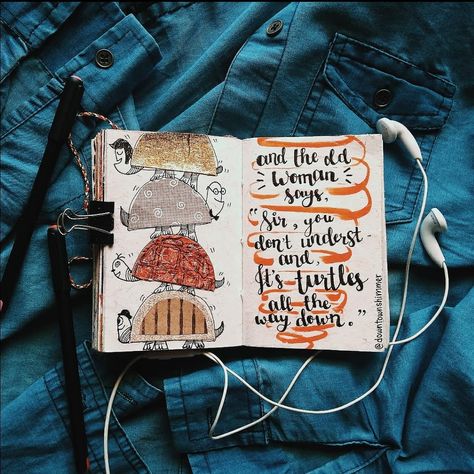 and the old
woman
says,
"Sir, you
don't underst
and,
It's turtles
all the
way down."
@downtownshimmer